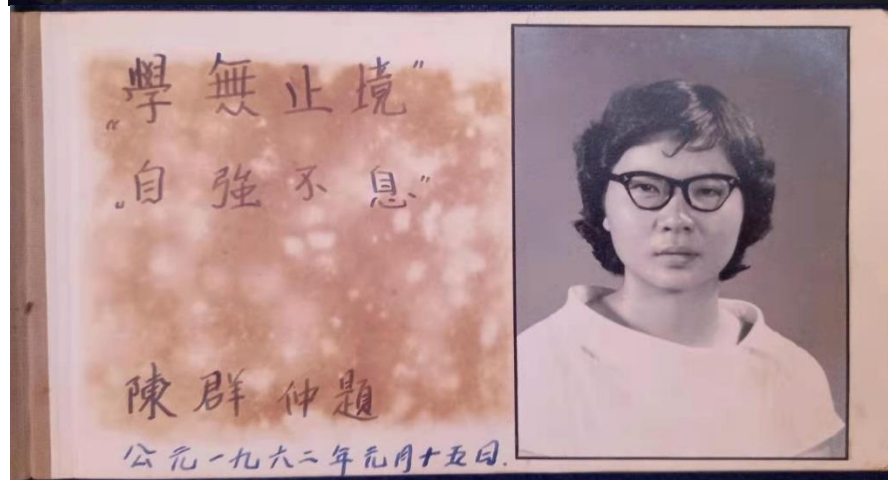 “學無止境”
“自強不息”
陳群仲題
公元一九六二年元月十五日.